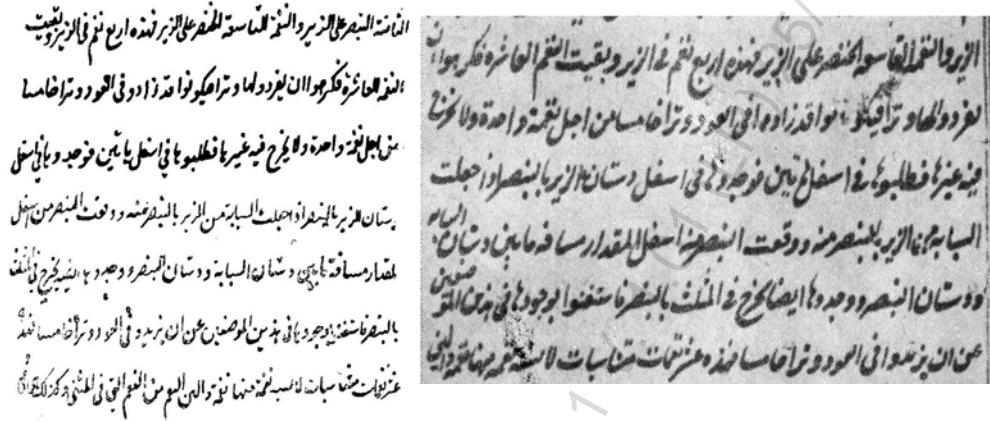 الثامنة البنصر على الزير والنغمة التاسعة الخنصر على الزير فهذه اربع نغم فى الزير وبقيت
النغمة العاشرة فكرهوا ان يفردوا لها وترا فيكونوا قد زادوا فى العود وترا خامسا
من اجل نغمة واحدة ولا يخرج فيه غيرها فطلبوها فى اسفل فوجدوها فى اسفل
دستان الزير بالبنصر اذ جعلت السبابة من الزير بالبنصر عنه ووقعت البنصر من اسفل
لمقدار مسافة ما بين دستان السبابة ودستان البنصر ووجدوها ايضا تخرج فى المثلث
بالبنصر فاستغنوا بوجودها فى هذين الموضعين عن ان يزيدوا فى العود وترا خامسا فهذه
عشر نغمات متناسبات لا تشبه نغمة منها نغمة اليم من النغم التى فى المثنى وكذلك
الزير والنغمة التاسعة الخنصر على الزير فهذه اربع نغم فى الزير وبقيت النغم العاشرة فكرهوا ان
يفردوا لها وترا فيكونوا قد زادوا فى العود وترا خامسا من اجل نغمة واحدة ولا يخرج
فيه غيرها فطلبوها فى اسفل فوجدوها فى اسفل دستان الزير بالبنصر اذ جعلت
السبابة الزير بالبنصر منه ووقعت البنصر منه اسفل المقدار مسافة ما بين دستان السبابة
ودستان البنصر ووجدوها ايضا تخرج فى المثلث بالبنصر فاستغنوا بوجودها فى هذين الموضعين
عن ان يزيدوا فى العود وترا خامسا فهذه عشر نغمات متناسبات لا تشبه نغمة منها نغمة